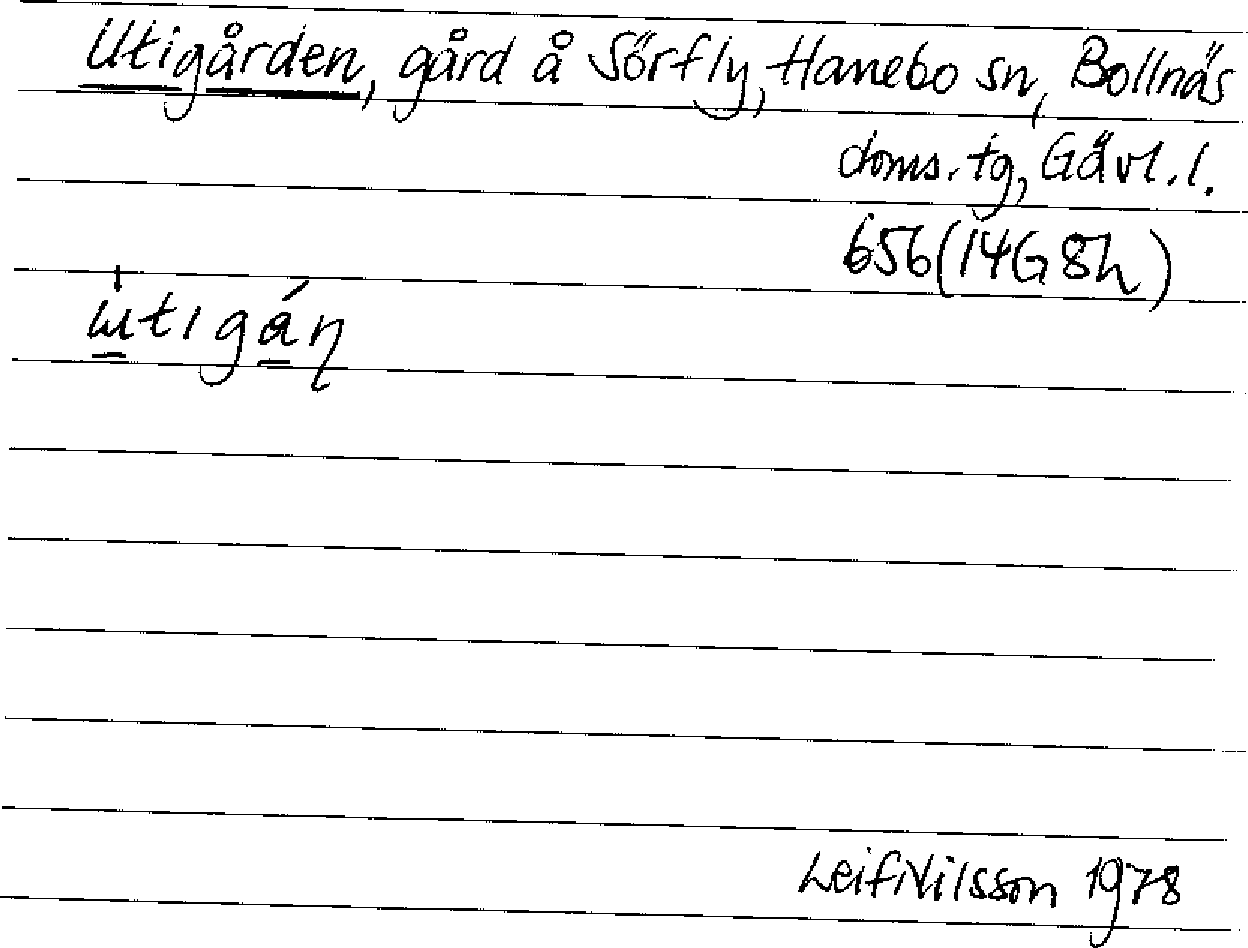 Utigården, gård å Sörfly, Hanebo sn, Bollnäs
doms. tg, Gävl. l.
656 (14G 8h)
Leif Nilsson 1978